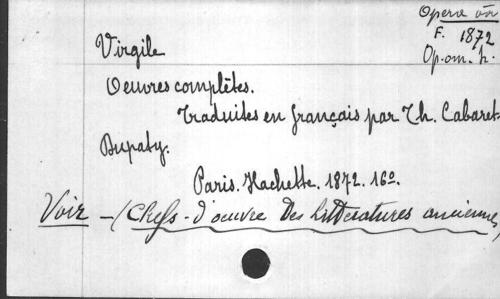 Opera om
F. 1872
Op. om. h.
Virgile
Oeuvres complètes.
Traduites en français par Th. Cabaret-
Dupaty.
Paris. Hachette. 1872. 16º.
Voir - (Chefs-d'oeuvre des littératures anciennes)